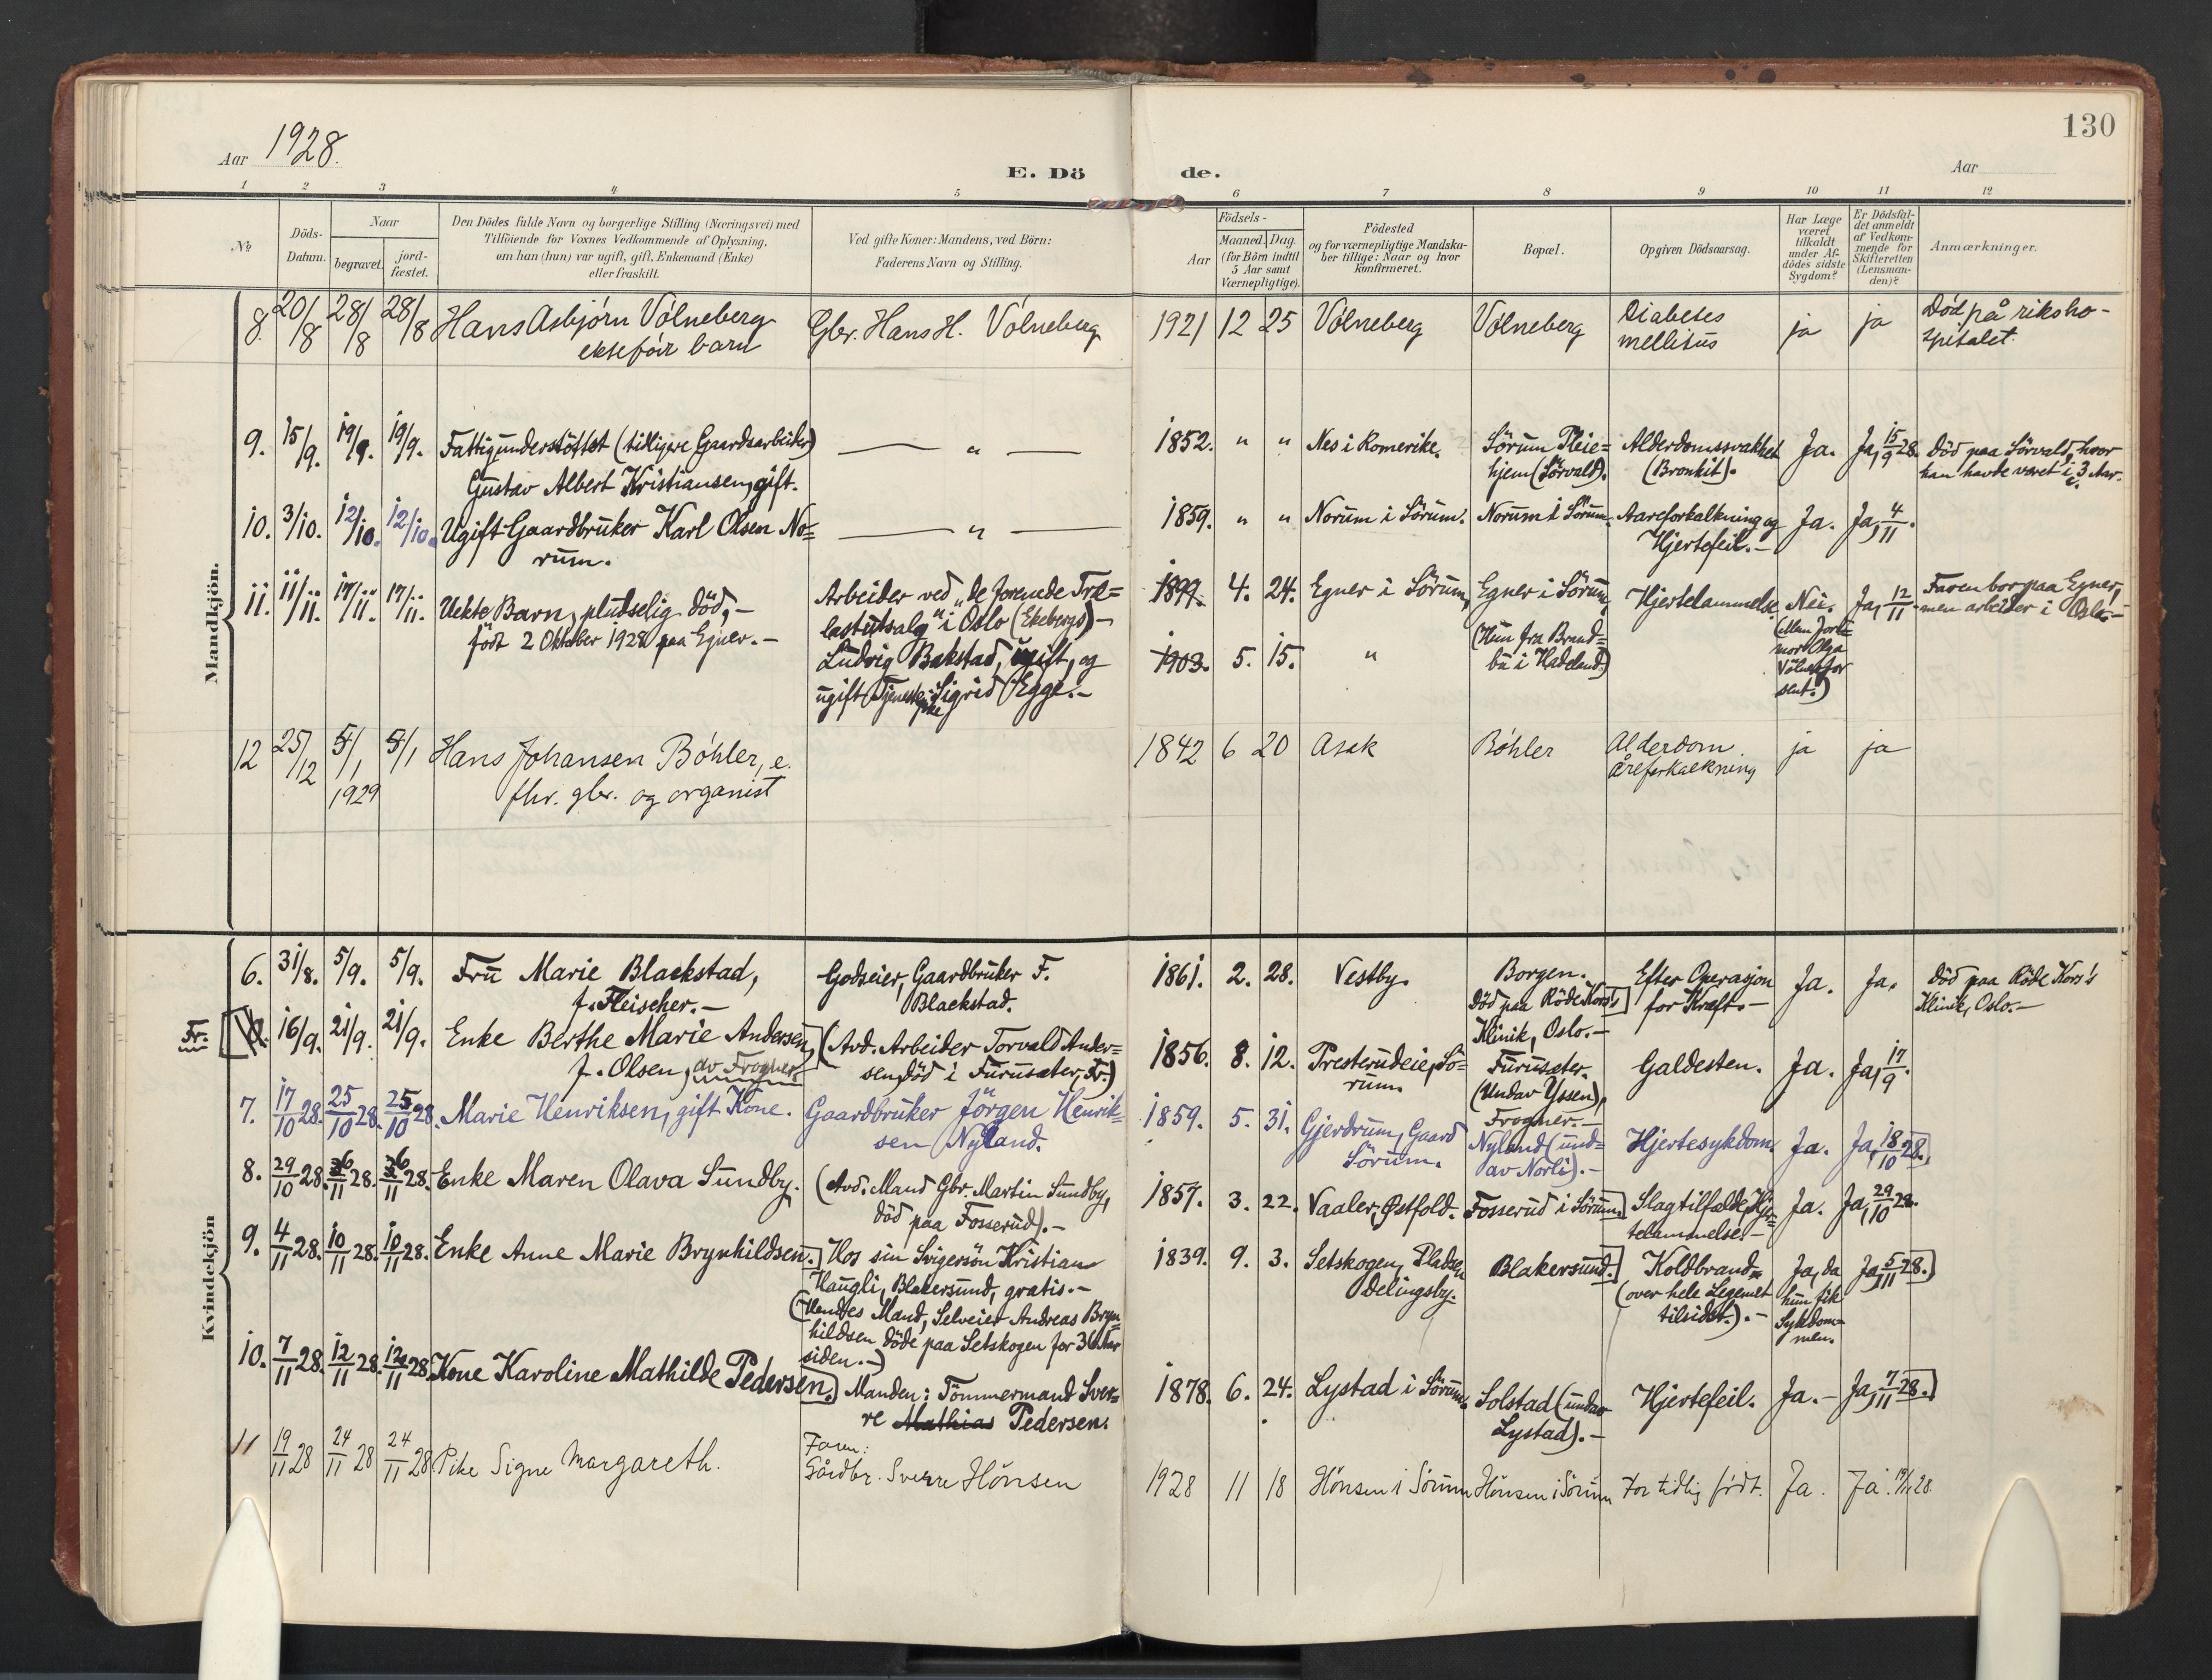 130
Aar 1928.
E. Dö de.
Aar
1 2 3 4 5 6 7 8 9 10 11 12
No
Döds-
Datum.
Naar
begravet.
jord-
fæstet.
Den Dödes fulde Navn og borgerlige Stilling (Næringsvei) med
Tilföiende for Voxnes Vedkommende af Oplysning,
om han (hun) var ugift, gift, Enkemand (Enke)
eller fraskilt.
Ved gifte Koner: Mandens, ved Börn:
Faderens Navn og Stilling.
Födsels-
Aar
Maaned. Dag.
(for Börn indtil
5 Aar samt
Værnepligtige).
Födested
og for værnepligtige Mandska-
ber tillige: Naar og hvor
konfirmeret.
Bopæl.
Opgiven Dödsaarsag.
Har Læge
været
tilkaldt
under Af-
dödes sidste
Sygdom?
Er Dödsfal-
det anmeldt
af Vedkom-
mende for
Skifteretten
(Lensman-
den)?
Anmærkninger.
Mandkjön.
8. 20/8 28/8 28/8 Hans Asbjørn Völneberg
ektefôdt barn
Gbr. Hans H. Völneberg
1921 12 25 Völneberg Völneberg
Diabetes
mellitus
ja ja
Död på riksho-
spitalet.
9. 15/9. 19/9. 19/9. Fattigunderstöttet (tidligere Gaardsarbeider)
Gustav Albert Kristiansen, gift.
— " —
1852. " " Nes i Romerike.
Sörum Pleie=
hjem (Sörvald).
Alderdomssvakhet
(Bronkit).
Ja. Ja, 15/9 28.
Död paa Sörvald, hvor
han havde været i 3 Aar.
10. 3/10. 12/10. 12/10. Ugift Gaardbruker Karl Olsen No=
rum.
— " —
1859. " " Norum i Sörum. Norum i Sörum.
Aareforkalkning og
Hjertefeil.-
Ja. Ja, 4/11.
11. 11/11. 17/11. 17/11. Uekte Barn, pludselig död,-
födt 2 Oktober 1928 paa Egner.-
Arbeider ved "de forenede Træ=
lastutsalg" i Oslo (Ekebergs)-
Ludvig Bakstad, ugift, og
ugift Tjenestepike Sigrid Egge.-
1899. 4. 24. Egner i Sörum, Egner i Sörum,
1903. 5. 15. "
(Hun fra Brand=
bu i Hadeland.)
Hjertelammelse.
Nei.
(Men Jord=
mor Olga
Völner for
sent.)
Ja, 12/11.
Faren bor paa Egner,
men arbeider i Oslo.-
12 25/12 5/1 1929 5/1 Hans Johansen Böhler, e.
fhv. gbr. og organist
1842 6 20 Asak Böhler
Alderdom.
Åreforkalkning
ja ja
Kvindekjön
6. 31/8. 5/9. 5/9. Fru Marie Blackstad,
f. Fleischer.-
Godseier, Gaardbruker F.
Blackstad.
1861. 2. 28. Vestby.
Borgen.
Död paa Röde Kors's
Klinik, Oslo.-
Efter Operasjon
for Kræft.-
Ja. Ja.
Död paa Röde Kors's
Klinik, Oslo.-
Fr. 16/9. 21/9. 21/9. Enke Berthe Marie Andersen,
f. Olsen, av Frogner.
(Avd. Arbeider Torvald Ander=
sen, död i Furusæter, Fr.)
1856. 8. 12. Presterudeie, Sö=
rum.
Furusæter.
(Undav Yssen),
Frogner.-
Galdesten. Ja. Ja, 17/9.
7. 17/10 28. 25/10 28. 25/10 28. Marie Henriksen, gift Kone.
Gaardbruker Jörgen Henrik=
sen Nyland.
1859. 5. 31. Gjerdrum, Gaard
Sörum.
Nyland (und=
av Norli).-
Hjertesykdom. Ja. Ja, 18/10 28.
8. 29/10 28. 6/11 28. 6/11 28. Enke Maren Olava Sundby.
(Avd. Mand Gbr. Martin Sundby,
död paa Fosserud).-
1857. 3. 22. Vaaler, Østfold. Fosserud i Sörum.
Slagtilfælde, Hjer=
telammelse.-
Ja. Ja, 29/10 28.
9. 4/11 28. 10/11 28. 10/11 28. Enke Anne Marie Brynhildsen.
Hos sin Svigersön Kristian
Haugli, Blakersund, gratis.-
(Hendes Mand, Selveier Andreas Bryn=
hildsen döde paa Setskogen for 36 Aar
siden.-)
1839. 9. 3. Setskogen, Pladsen
Delingsby.
Blakersund.
Koldbrand
(over hele Legemet
tilsidst.).-
Ja, da
hun fik
Sykdom=
men.
Ja, 5/11 28.)
10. 7/11 28. 12/11 28. 12/11 28. Kone Karoline Mathilde Pedersen.
Manden: Tömmermand Sver=
re Mathias Pedersen.
1878. 6. 24. Lystad i Sörum.
Solstad (undav
Lystad).-
Hjertefeil. Ja.- Ja, 7/11 28.)
11 19/11 28 24/11 28 24/11 28 Pike Signe Margareth.
Faren:
Gårdbr. Sverre Hönsen
1928 11 18 Hönsen i Sörum Hönsen i Sörum For tidlig födt. Ja. Ja. 19/11 28.